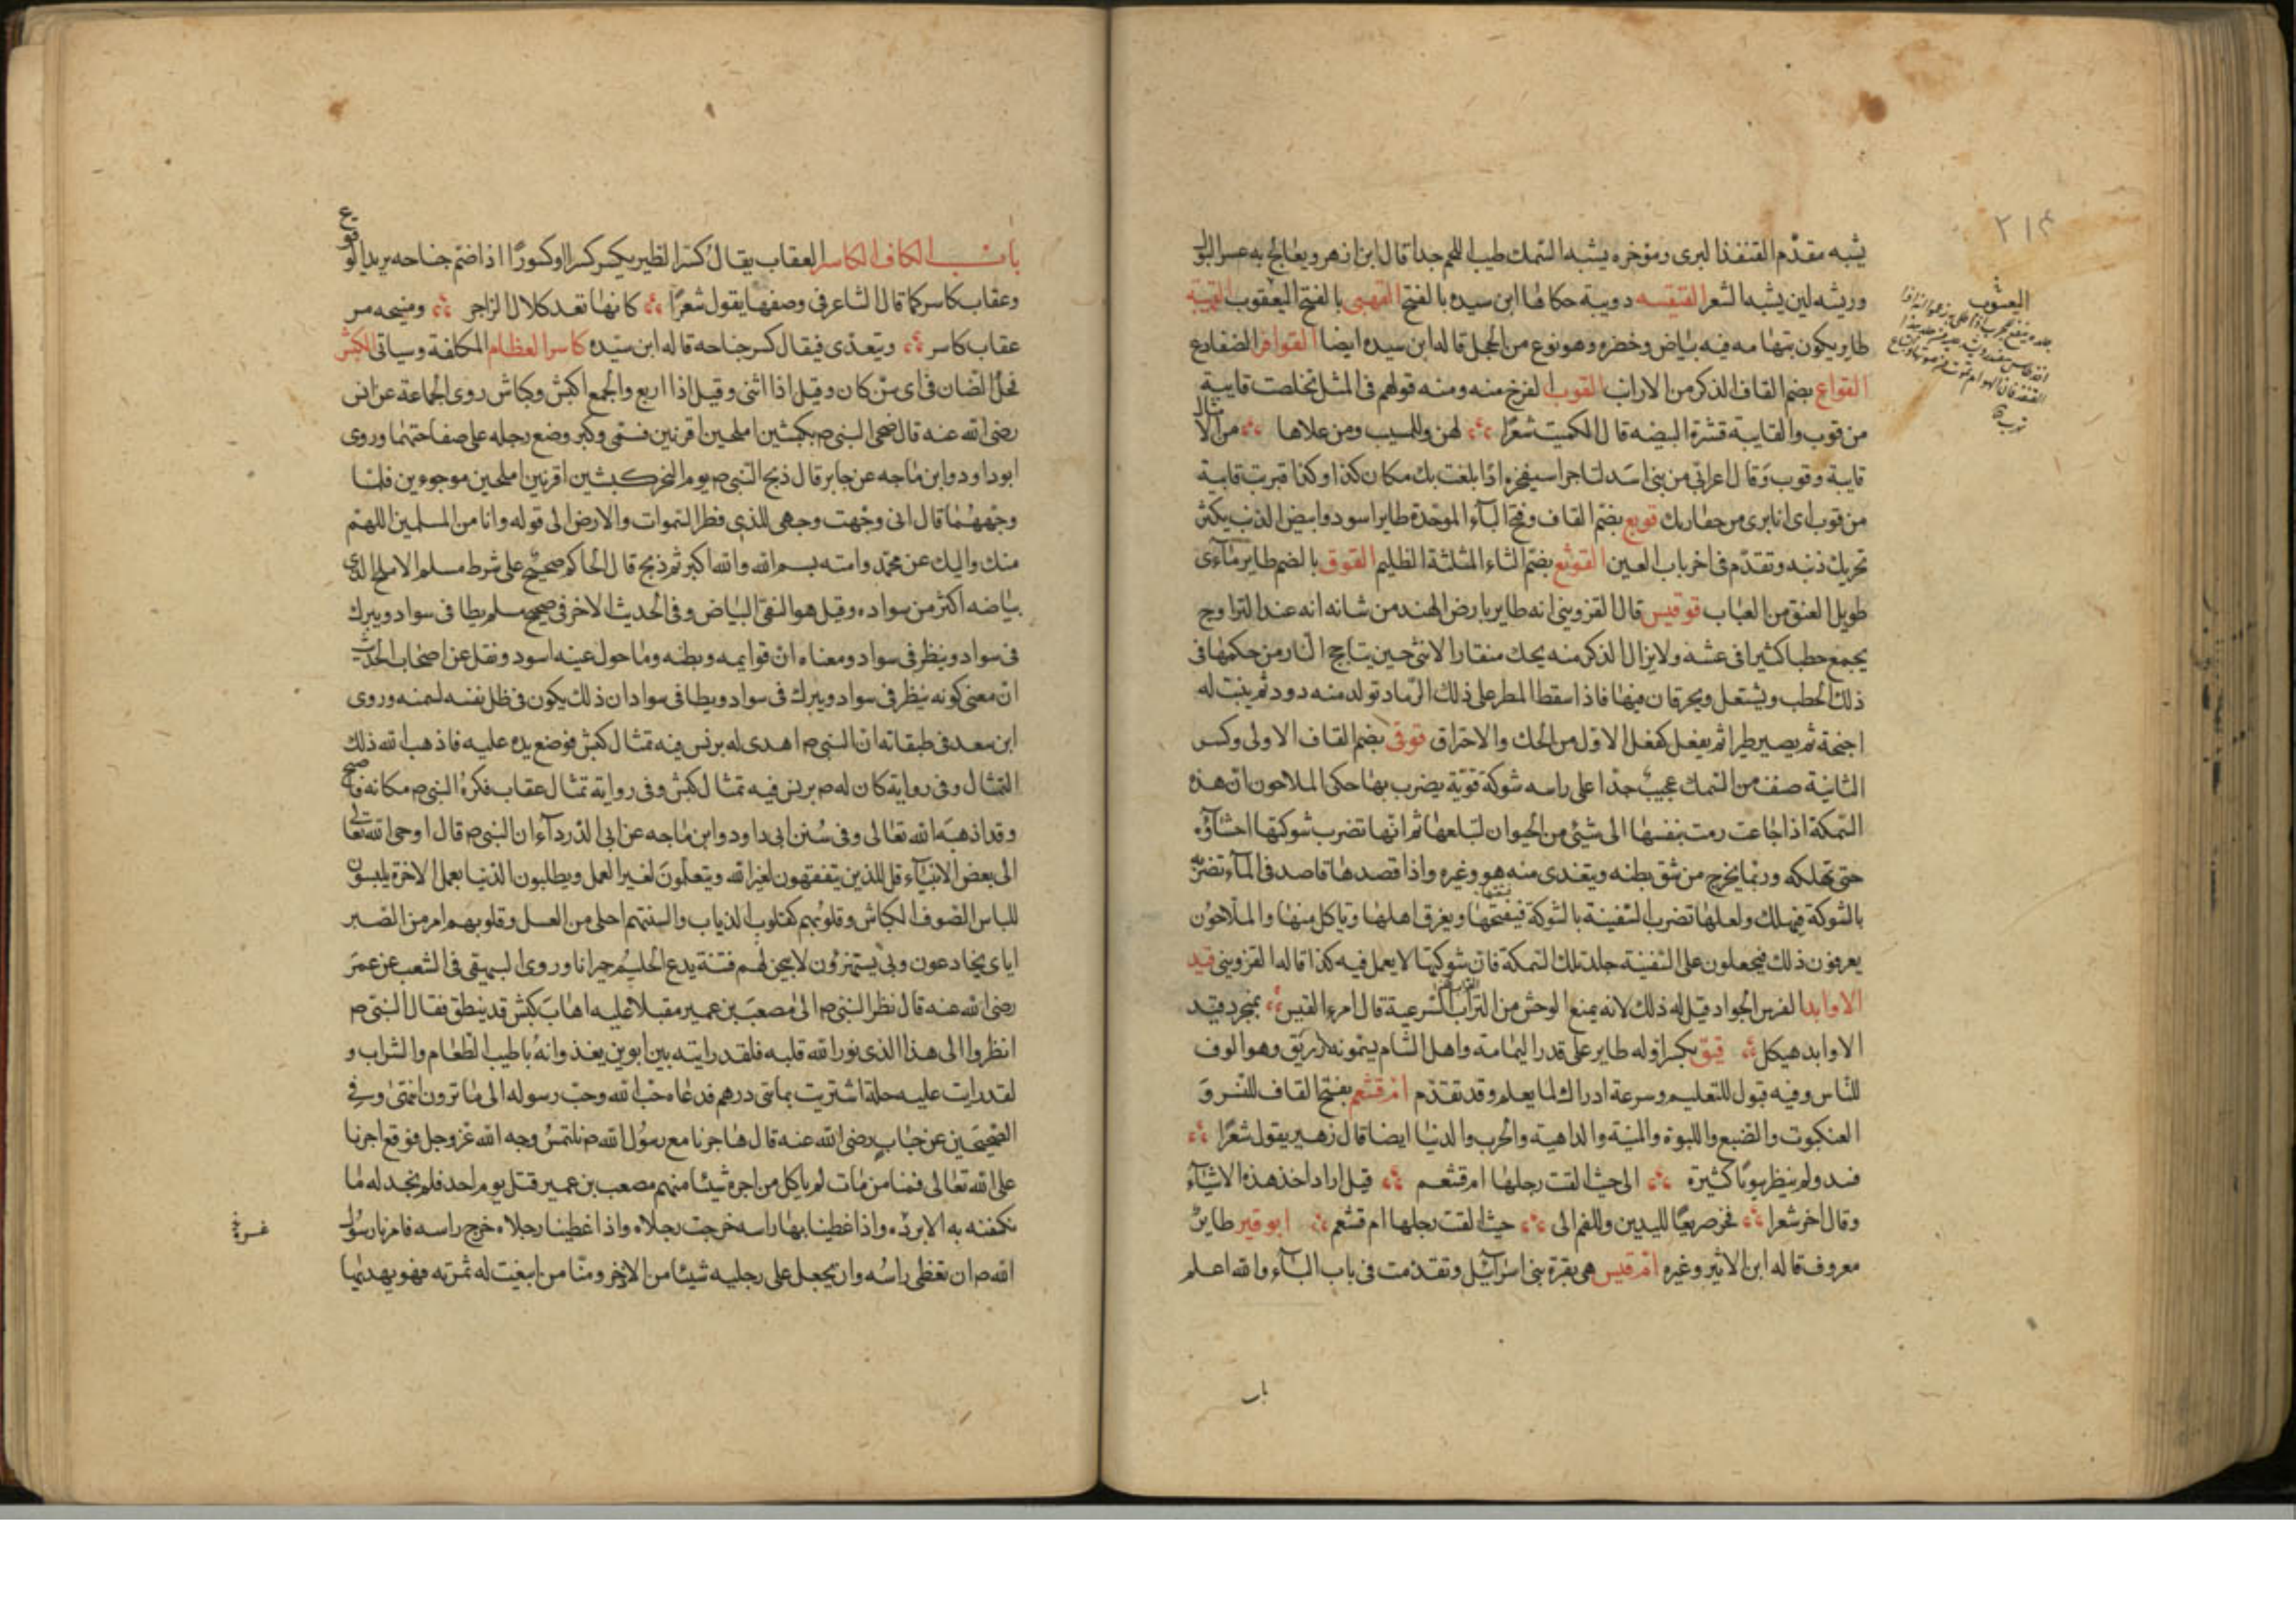 يشبه مقدّم القنفذ البرى ومؤخره يشبه السمك طيب اللحم جدا قال ابن زهر ويعالج به عسر البول
وريشه لين يشبه الشعر القتيسه دويبة حكاها ابن سيده بالفتح القهبى بالفتح اليعقوب القهيبة
طاير يكون بتهامه فيه بياض وخضره وهو نوع من الحجل قاله ابن سيده ايضا القوافر الضفادع
القواع بضم القاف الذكر من الارانب القوب الفرخ منه ومنه قولهم فى المثل تخلصت قايبة
من قوب والقايبة قشرة البيضه قال الكميت شعرًا لهن وللمشيب ومن علاها من الامثال
قايبة وقوب وقال اعرابي من بنى اسد لتاجر استخفره اذا بلغت بك مكان كذا وكذا فبريت قايبة
من قوب اى انا برى من خفارتك قوبع بضم القاف وفتح البآء الموحّدة طاير اسود وابيض الذنب يكثر
تحريك ذنبه وتقدّم فى اخر باب العين القوثع بضم الثاء المثلثة الظليم القوق بالضم طاير مآءى
طويل العنق من العباب قوقيس قال القزوينى انه طاير بارض الهند من شانه انه عند التزاوج
يجمع حطبا كثيرا فى عشه ولا يزال الذكر منه يحك منقار الانثى حين يتاجج النار من حكهما فى
ذلك الحطب ويشتعل ويحرقان فيها فاذا سقط المطر على ذلك الرّماد تولد منه دود ثم ينبت له
اجنحة ثم يصير طيرا ثم يفعل كفعل الاوّل من الحك والاحتراق قوقى بضم القاف الاولى وكسر
الثانية صنف من السمك عجيب جدّا على راسه شوكة قوّية يضرب بها حكى الملاحون ان هذه
السمكة اذا جاعت رمت بنفسها الى شئ من الحيوان ليبلعها ثم انها تضرب بشوكتها احشاؤه
حتى تهلكه وربّما يخرج من شق بطنه ويتغذى منه هو وغيره واذا قصدها قاصد فى المآء تضربه
بالشوكة فيهلك ولعلها تضرب السّفينة بالشوكة فيفتحها ويغرق اهلها وتاكل منها والملاحون
يعرفون ذلك فيجعلون على السّفينة جلد تلك السمكة فان شوكتها لا يعمل فيه كذا قاله القزوينى قيد
الاوابد الفرس الجواد قيل له ذلك لانه يمنع الوحش من السرعية قال امرء القيس بمنجرد قيد
الاوابد هيكل قيق بكسر اوله طاير على قدر اليمامة واهل الشام يسمونه ابا زريق وهو الوف
للنّاس وفيه قبول للتعليم وسرعة ادراك لما يعلم وقد تقدّم ام قشعم بفتح القاف للنسر و
العنكبوت والضبع واللبوة والمنية والداهية والحرب والدنيا ايضا قال زهير يقول شعرًا
فشد ولم ينظر بيوتا كثيرة الى حيث القت رحلها ام قشعم قيل اراد احد هذه الاشيآء
وقال اخر شعرا فخر صريعًا لليدين وللفم الى حيث القت رحلها ام قشعم ابو قير طاير
معروف قاله ابن الاثير وغيره ام قيس هى بقرة بنى اسرآئيل وتقدّمت فى باب البآء والله اعلم
باب
٢١٤
باب الكاف الكاسر العقاب يقال كسر الطير يكسر كسرا وكسورًا اذا ضم جناحه يريد الوقوع
وعقاب كاسر كما قال الشاعر فى وصفها يقول شعرًا كانها بعد كلال الزاجر ومسحه مر
عقاب كاسر ويتعدّى فيقال كسر جناحه قاله ابن سيّده كاسر العظام المكلفة وسياتى الكبش
فحل الضان فى اى سنّ كان وقيل اذا اثنى وقيل اذا اربع والجمع اكبش وكباش روى الجماعة عن انس
رضى الله عنه قال ضحى النبى م بكبشين املحين اقرنين فسمّى وكبر وضع رجله على صفاحتهما وروى
ابو داود وابن ماجه عن جابر قال ذبح النّبى م يوم النحر كبشين اقرنين املحين موجوءين فلمّا
وجههما قال انى وجّهت وجهى للذى فطر السّموات والارض الى قوله وانا من المسلمين اللهمّ
منك واليك عن محمّد وامته بسم الله والله اكبر ثم ذبح قال الحاكم صحيح على شرط مسلم الاملح الذى
بياضه اكثر من سواده وقيل هو النقىّ البياض وفى الحديث الاخر فى صحيح مسلم يطا فى سواد ويبرك
فى سواد وينظر فى سواد ومعناه انّ قوايمه وبطنه وما حول عينه اسود ونقل عن اصحاب الحديث
انّ معنى كونه ينظر فى سواد ويبرك فى سواد ويطا فى سواد ان ذلك يكون فى ظل نفسه لسمنه وروى
ابن سعد فى طبقاته ان النبى م اهدى له برنس فيه تمثال كبش فوضع يده عليه فاذهب الله ذلك
التمثال وفى رواية كان له م برنس فيه تمثال كبش وفى رواية تمثال عقاب فكره النبى م مكانه فاصبح
وقد اذهبه الله تعالى وفى سُنن ابى داود وابن ماجه عن ابى الدّردآء ان النبى م قال اوحى الله تعالى
الى بعض الانبيآء قل للذين يتفقهون لغير الله ويتعلّمون لغير العمل ويطلبون الدّنيا بعمل الاخرة يلبسون
للباس الصّوف الكباش وقلوبهم كقلوب الذياب والسنتهم احلى من العسل وقلوبهم امر من الصّبر
اياى يخادعون وبى يستهزؤن لابيحن لهم فتنة يدع الحليم حيرانا وروى البيهقى فى الشعب عن عمر
رضى الله عنه قال نظر النبى م الى مصعب بن عمير مقبلا عليه اهاب كبش قد ينطق فقال النبى م
انظروا الى هذا الذى نور الله قلبه فلقد رايته بين ابوين يغذوانه باطيب الطعام والشراب و
لقد رايت عليه حلة اشتريت بمائتى درهم فدعاه حبّ الله وحبّ رسوله الى ما ترون انتهى وفى
الصّحيحين عن خباب رضى الله عنه قال هاجرنا مع رسول الله م نلتمس وجه الله عز وجل فوقع اجرنا
على الله تعالى فمنا من مات لم ياكل من اجره شيئا منهم مصعب بن عمير قتل يوم احد فلم نجد له ما
نكفنه به الا برده واذا غطينا بها راسه خرجت رجلاه واذا غطينا رجلاه خرج راسه فامرنا رسول
الله م ان نغطى راسُه وان نجعل على رجليه شيئا من الاذخر ومنّا من اينعت له ثمرته فهو يهدبها